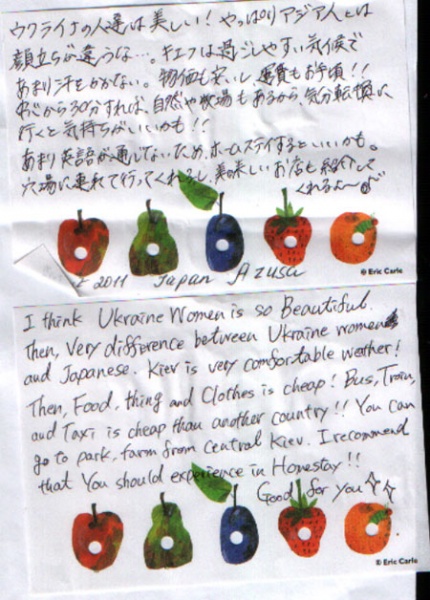 ウクライナの人達は美しい！やっぱりアジア人とは
顔立ちが違うな…。キエフは過ごしやすい気候で
あまり汗をかかない。物価も安いし、運賃もお手頃！！
から30分すれば、自然や牧場もあるから、気分転換に
行くと気持ちがいいかも！！
あまり英語が通じてないため、ホームステイするといいかも。
穴場に連れて行ってくれるし、美味しいお店も紹介して
くれるよ〜♪
© Eric Carle
2011 Japan Azusa
I think Ukraine Women is so Beautiful.
Then, Very difference between Ukraine women
and Japanese. Kiev is very comfortable weather!
Then, Food, thing and Clothes is cheap! Bus, Train,
and Taxi is cheap than another country!! You can
go to park, farm from central Kiev. I recommend
that You should experience in Homestay!!
Good for you
© Eric Carle